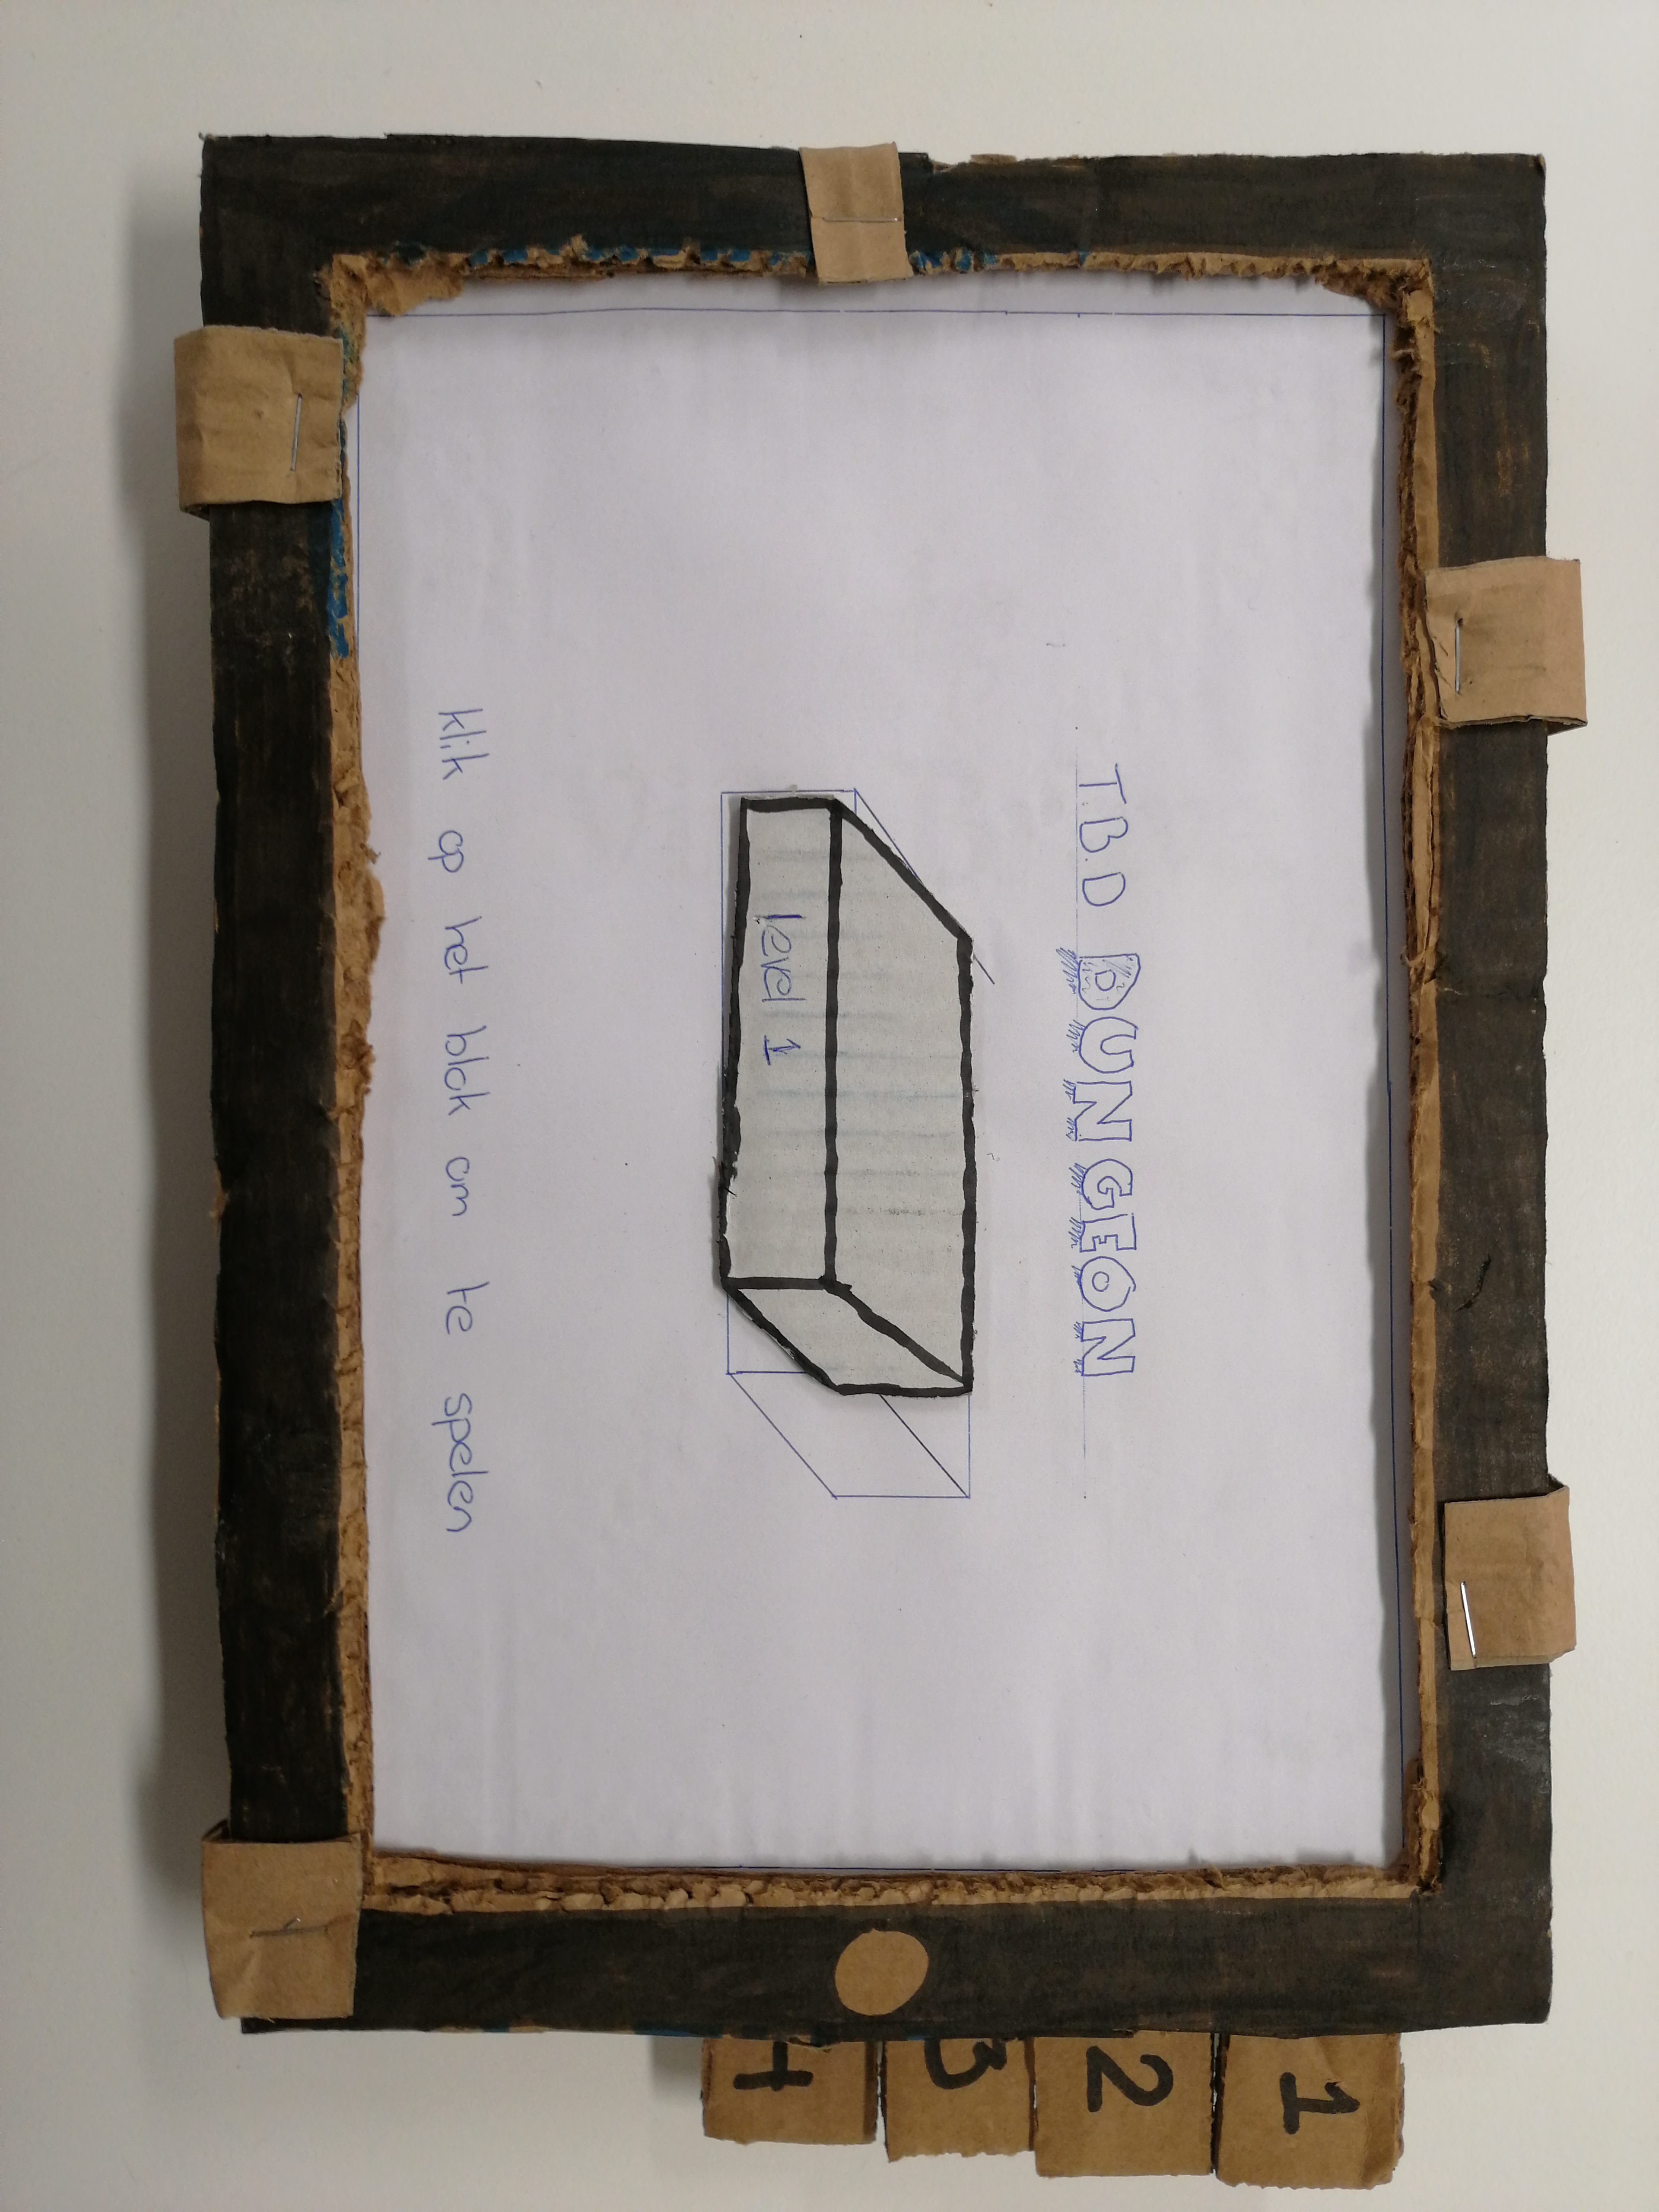 T.B.D DUNGEON
level 1
klik op het blok om te spelen
1
2
3
4